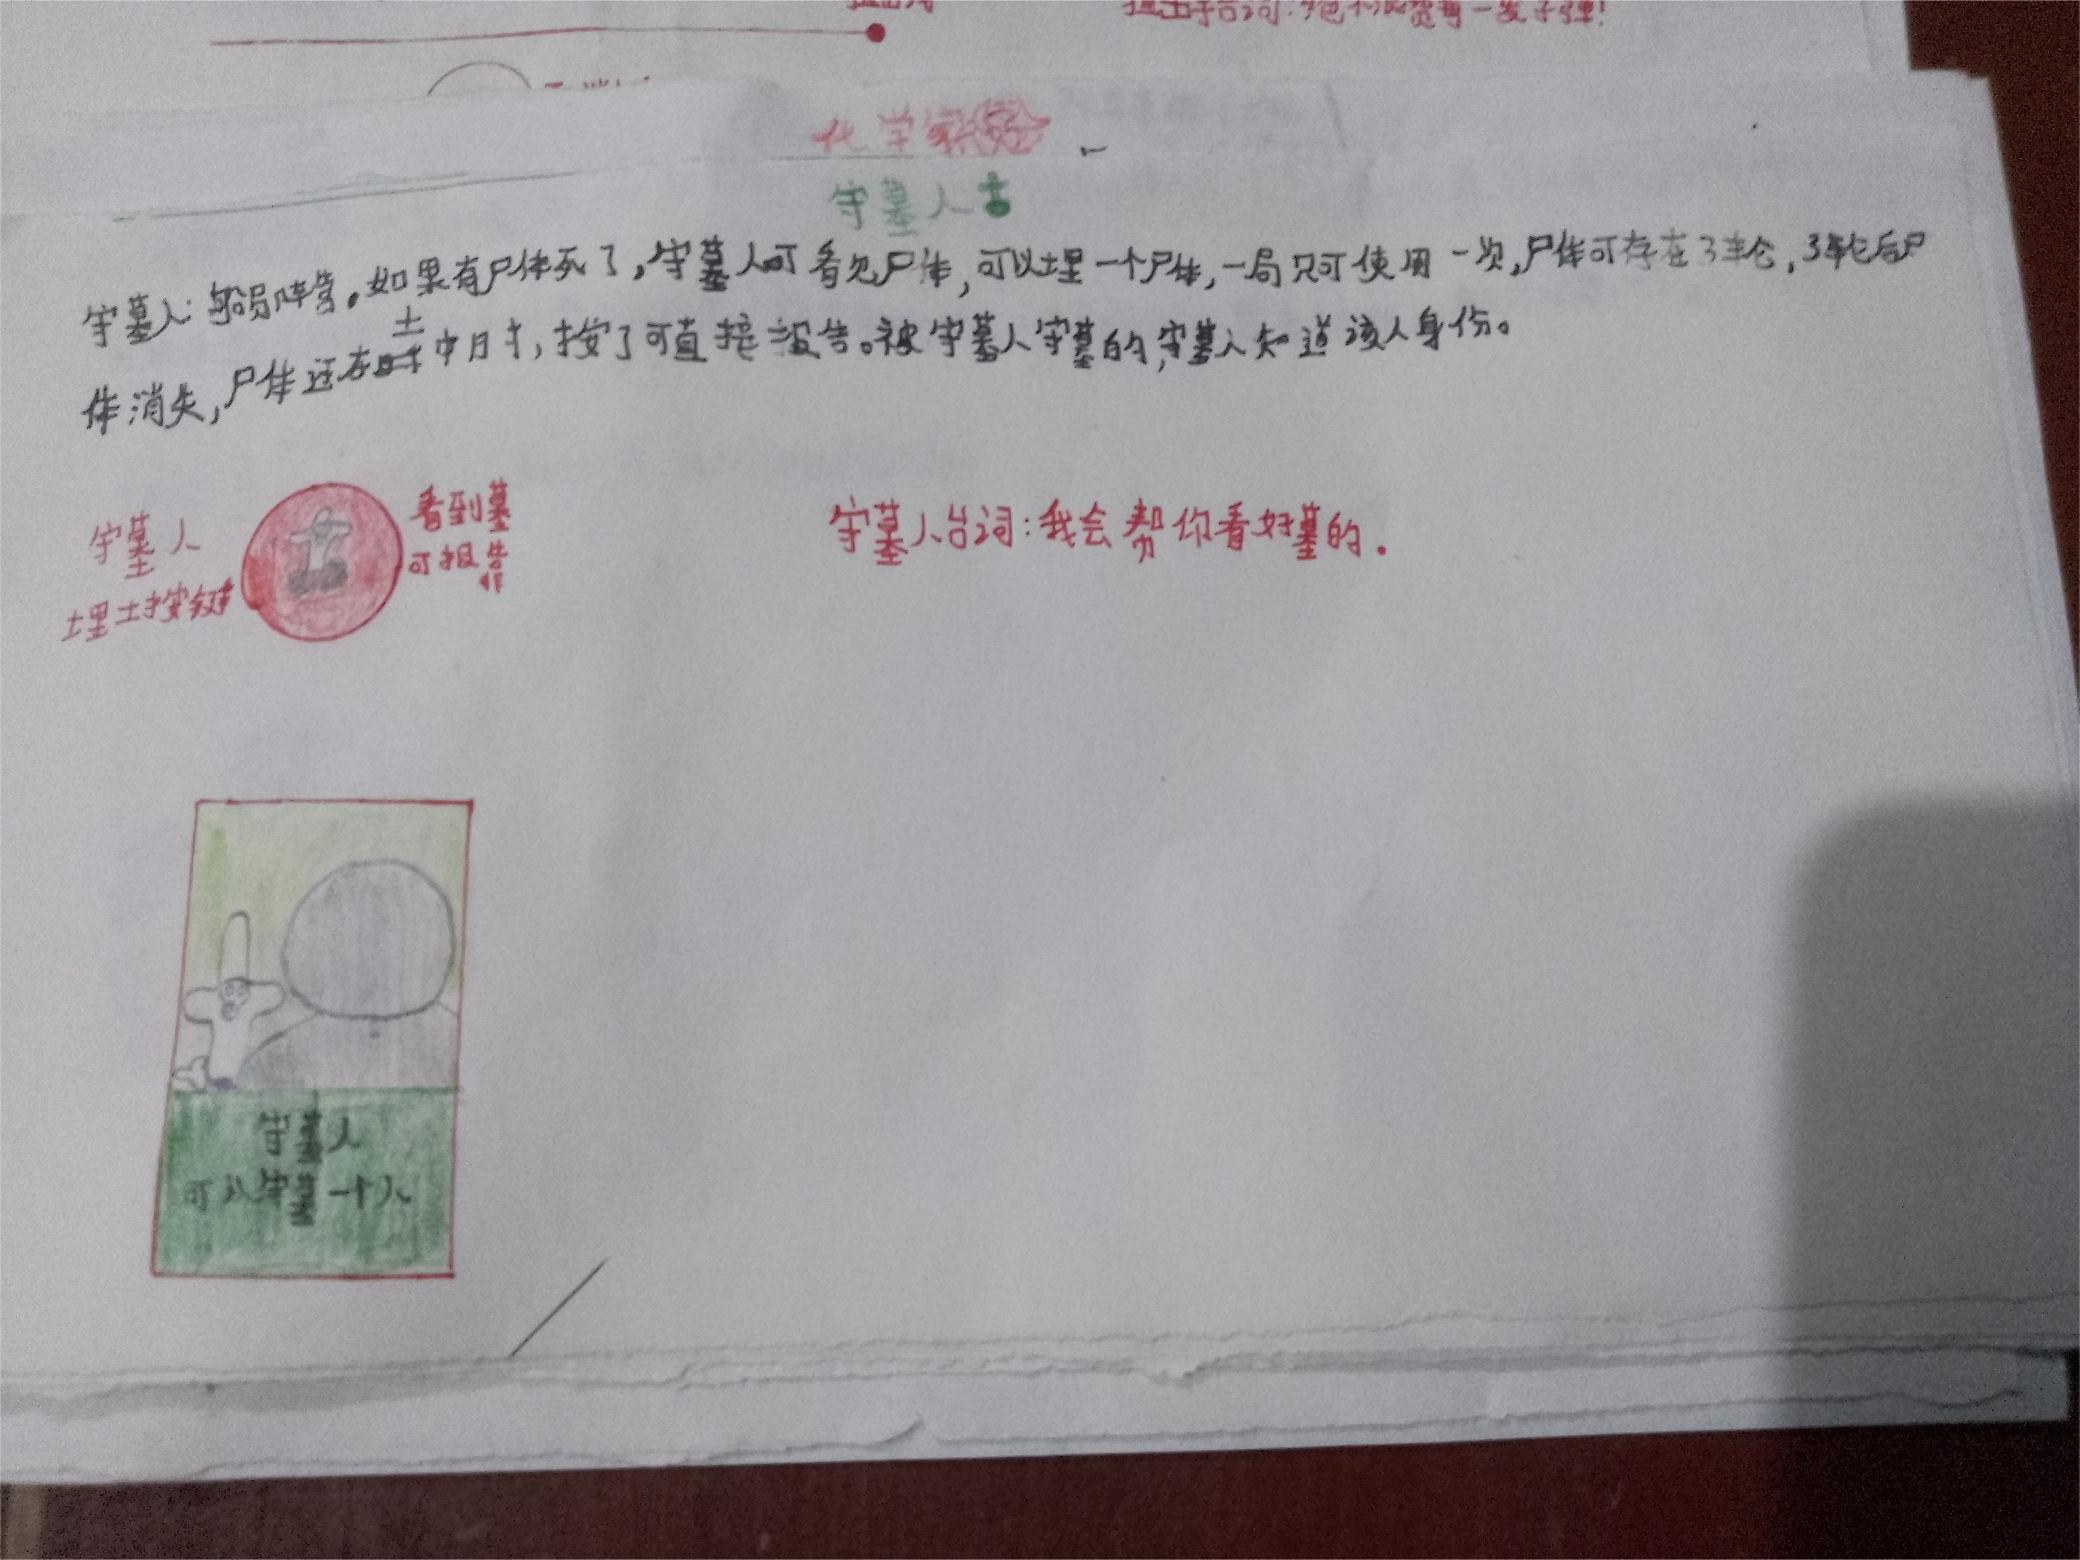 化学家
守墓人
守墓人：船员阵营。如果有尸体死了，守墓人可看见尸体，可以埋一个尸体，一局只可使用一次，尸体可存在3轮，3轮后尸
体消失，尸体还在土中时，按了可直接报告。被守墓人守墓的，守墓人知道该人身份。
守墓人
埋土按钮
看到墓
可报告
守墓人台词：我会帮你看好墓的.
守墓人
可以守墓一个人